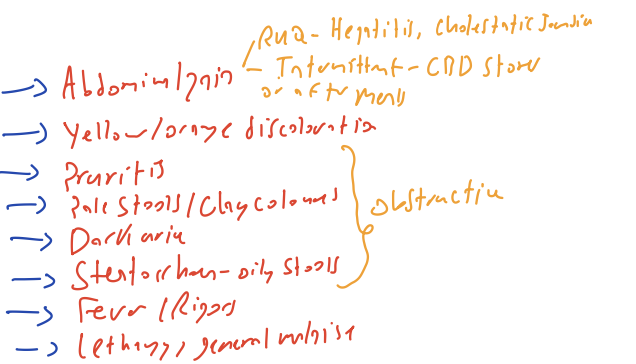 RUQ - Hepatitis, Cholestatic Jaundice
Abdominal pain - Intermittent - CBD Stone
or after meals
Yellow/orange discolouration
Pruritis
Pale stools/Clay coloured
Obstructive
Dark urine
Steatorrhoea - oily stools
Fever/Rigors
Lethargy, general malaise